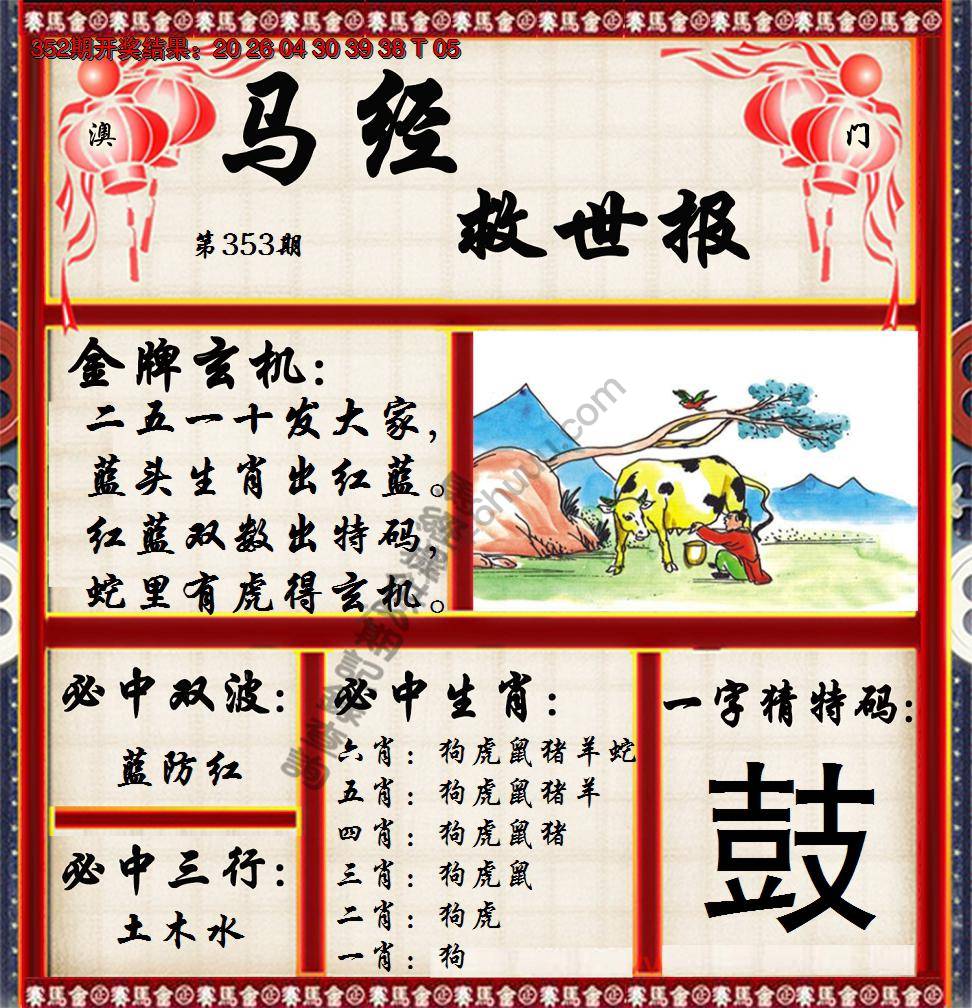 352期开奖结果：20 26 04 30 39 38 T 05
澳
门
马经
救世报
第353期
金牌玄机：
二五一十发大家，
蓝头生肖出红蓝。
红蓝双数出特码，
蛇里有虎得玄机。
必中双波：
蓝防红
必中三行：
土木水
必中生肖：
六肖：狗虎鼠猪羊蛇
五肖：狗虎鼠猪羊
四肖：狗虎鼠猪
三肖：狗虎鼠
二肖：狗虎
一肖：狗
一字猜特码：
鼓